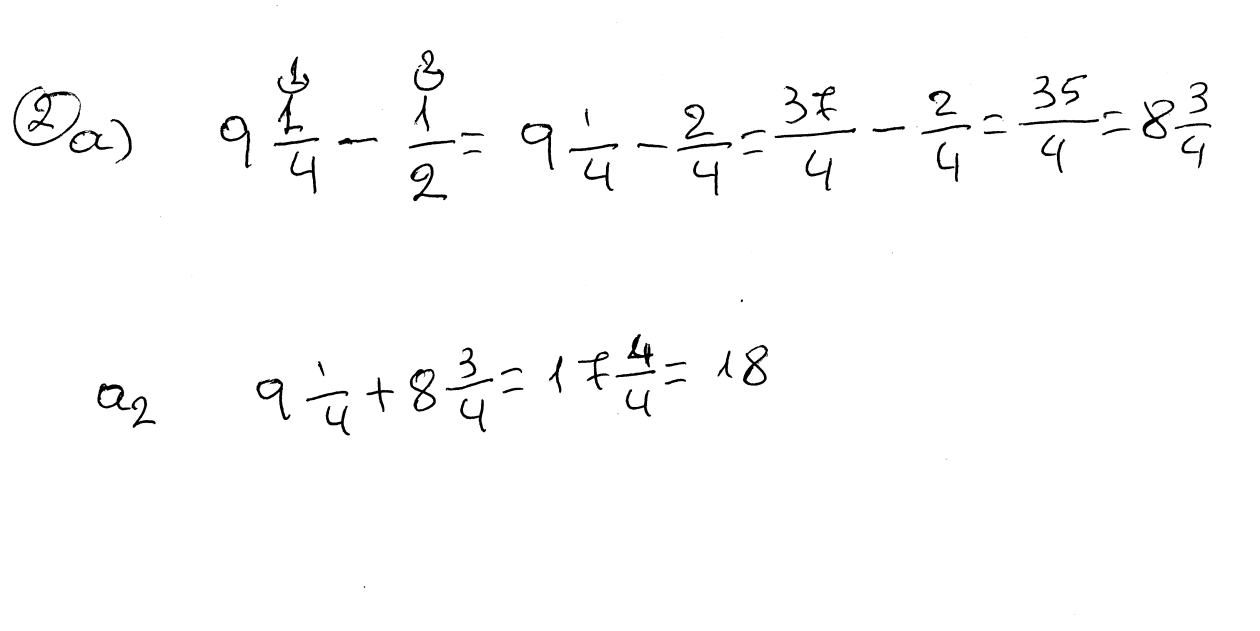 ② a) 9 1/4 - 1/2 = 9 1/4 - 2/4 = 37/4 - 2/4 = 35/4 = 8 3/4
a2 9 1/4 + 8 3/4 = 17 4/4 = 18